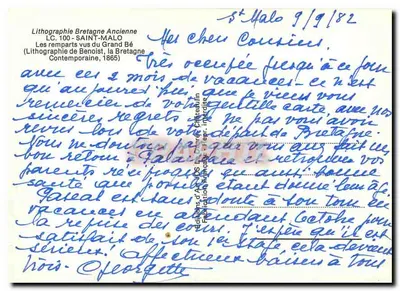 Lithographie Bretagne Ancienne
LC. 100 - SAINT-MALO
Les remparts vus du Grand Bé
(Lithographie de Benoist, la Bretagne
Contemporaine, 1865)
St Malo 9/9/82
Mes chers Cousins,
Très occupée jusqu'à ce jour
avec ces 2 mois de vacances - ce n'est
qu'aujourd'hui que je viens vous
remercier de votre gentille carte avec nos
sincères regrets de ne pas vous avoir
revus lors de votre départ de Bretagne.
Nous ne doutons pas que vous ayez fait un
bon retour et retrouvé vos
parents réciproques en aussi bonne
santé que possible étant donné leur âge.
Pascal est sans doute à son tour en
vacances en attendant Octobre pour
la reprise des cours. J'espère qu'il est
satisfait de son 1er stage, cela devient
sérieux! Affectueux baisers à tous
trois - Georgette